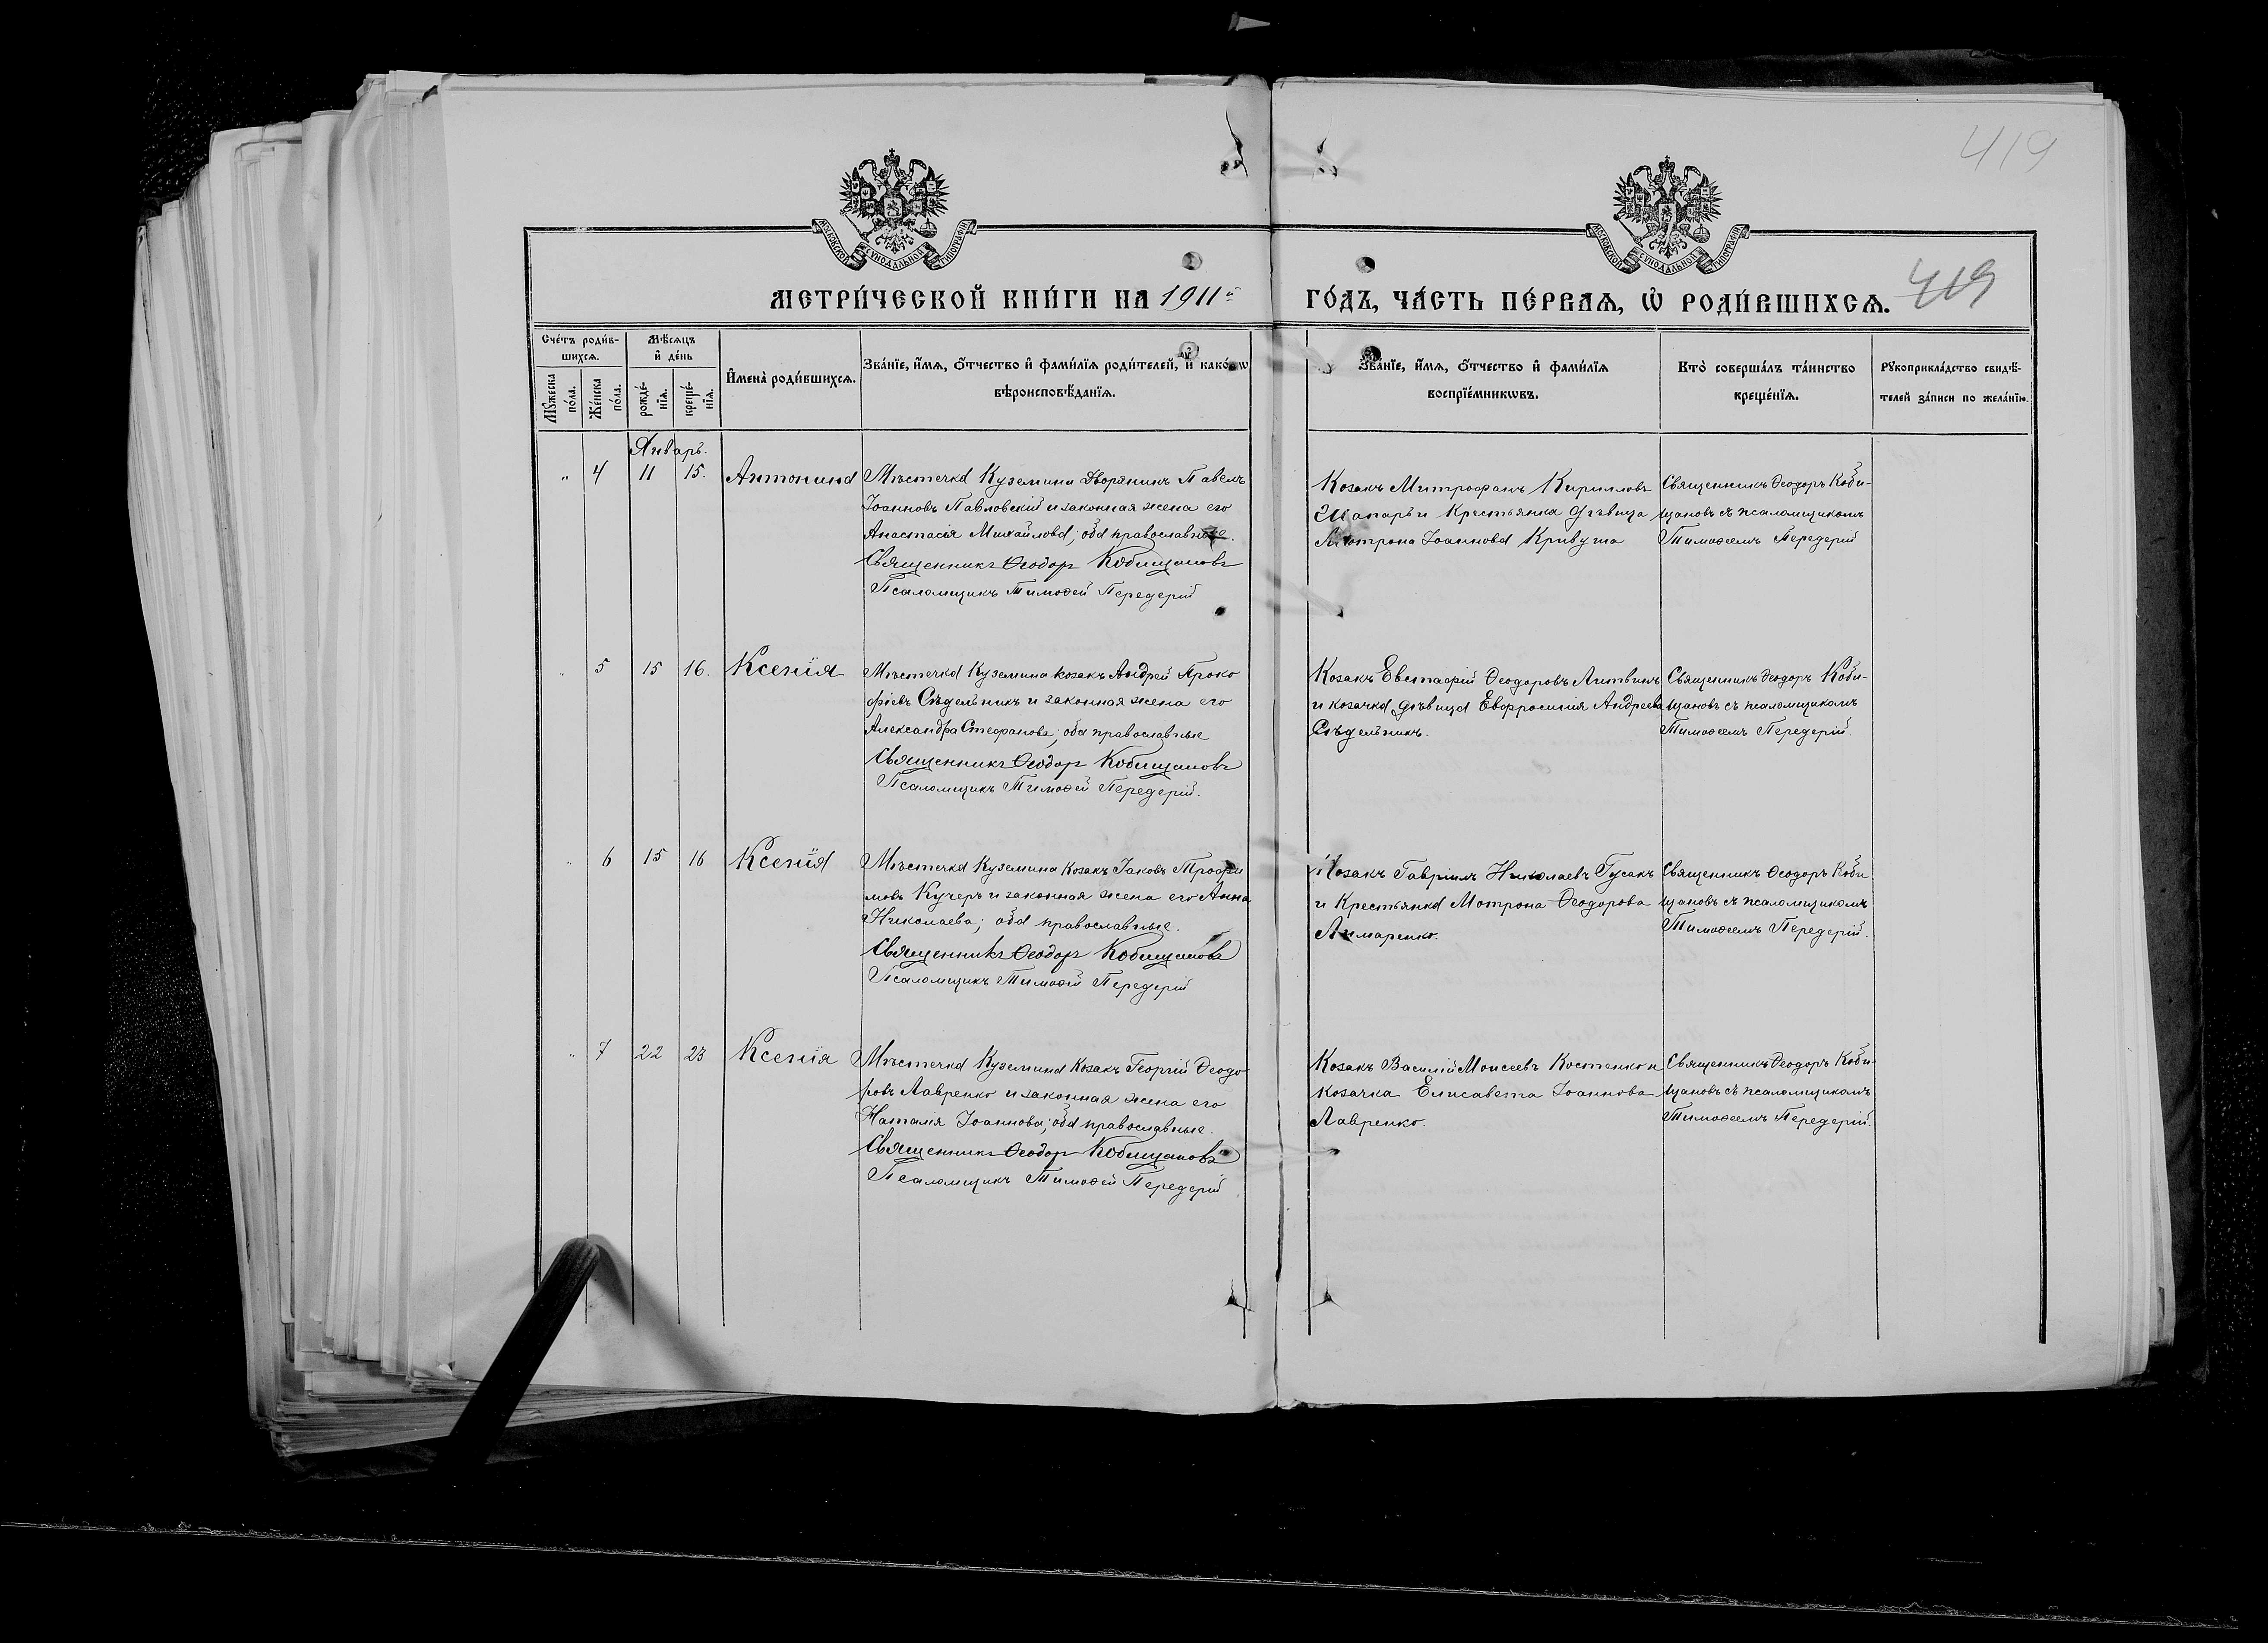 419
МОСКОВСКОЙ СѴНОДАЛЬНОЙ ТИПОГРАФІИ
МОСКОВСКОЙ СѴНОДАЛЬНОЙ ТИПОГРАФІИ
МЕТРИ́ЧЕСКОЙ КНИ́ГИ НА 1911й ГО́ДЪ, ЧА́СТЬ ПЕ́РВАѦ, Ѡ҆ РОДИ́ВШИХСѦ. 419
Сче́тъ роди́в-
шихсѧ.
Мꙋ́жеска по́ла.
Же́нска по́ла.
Мѣ́сѧцъ
и҆ де́нь
рожде́-
нїѧ.
креще́-
нїѧ.
И҆мена̀ роди́вшихсѧ.
Зва́нїе, и҆́мѧ, ѻ҆́тчество и҆ фами́лїѧ роди́телей, и҆ како́гѡ
вѣроисповѣ́данїѧ.
Зва́нїе, и҆́мѧ, ѻ҆́тчество и҆ фами́лїѧ
воспрїе́мникѡвъ.
Кто̀ соверша́лъ та́инство
креще́нїѧ.
Рꙋкоприкла́дство свидѣ́-
телей за́писи по жела́нїю.
Январь.
" 4 11 15. Антонина
Мѣстечка Куземина Дворянинъ Павелъ
Іоанновъ Павловскій и законная жена его
Анастасія Михайлова; оба православные.
Священникъ Ѳеодоръ Кобищановъ
Псаломщикъ Тимоѳей Передерій
Козакъ Митрофанъ Кирилловъ
Шапарь и Крестьянка дѣвица
Мотрона Іоаннова Кривуша
Священникъ Ѳеодоръ Коби-
щановъ съ псаломщикомъ
Тимоѳеемъ Передерій
" 5 15 16. Ксенія
Мѣстечка Куземина козакъ Андрей Проко
фіевъ Сѣдельникъ и законная жена его
Александра Стефанова; оба православные
Священникъ Ѳеодоръ Кобищановъ
Псаломщикъ Тимоѳей Передерій.
Козакъ Евстафій Ѳеодоровъ Литвинъ
и козачка дѣвица Евфросинія Андреева
Сѣдельникъ.
Священникъ Ѳеодоръ Коби-
щановъ съ псаломщикомъ
Тимоѳеемъ Передерій.
" 6 15 16 Ксенія
Мѣстечка Куземина Козакъ Іаковъ Трофи
мовъ Кучеръ и законная жена его Анна
Николаева; оба православные.
Священникъ Ѳеодоръ Кобищановъ
Псаломщикъ Тимоѳей Передерій
Козакъ Гавріилъ Николаевъ Гусакъ
и Крестьянка Мотрона Ѳеодорова
Лимаренко.
Священникъ Ѳеодоръ Коби
щановъ съ псаломщикомъ
Тимоѳеемъ Передерій.
" 7 22 23 Ксенія
Мѣстечка Куземина Козакъ Георгій Ѳеодо
ровъ Лавренко и законная жена его
Наталія Іоаннова; оба православные.
Священникъ Ѳеодоръ Кобищановъ
Псаломщикъ Тимоѳей Передерій
Козакъ Василій Моисеевъ Костенко и
козачка Елисавета Іоаннова
Лавренко.
Священникъ Ѳеодоръ Коби-
щановъ съ псаломщикомъ
Тимоѳеемъ Передерій.